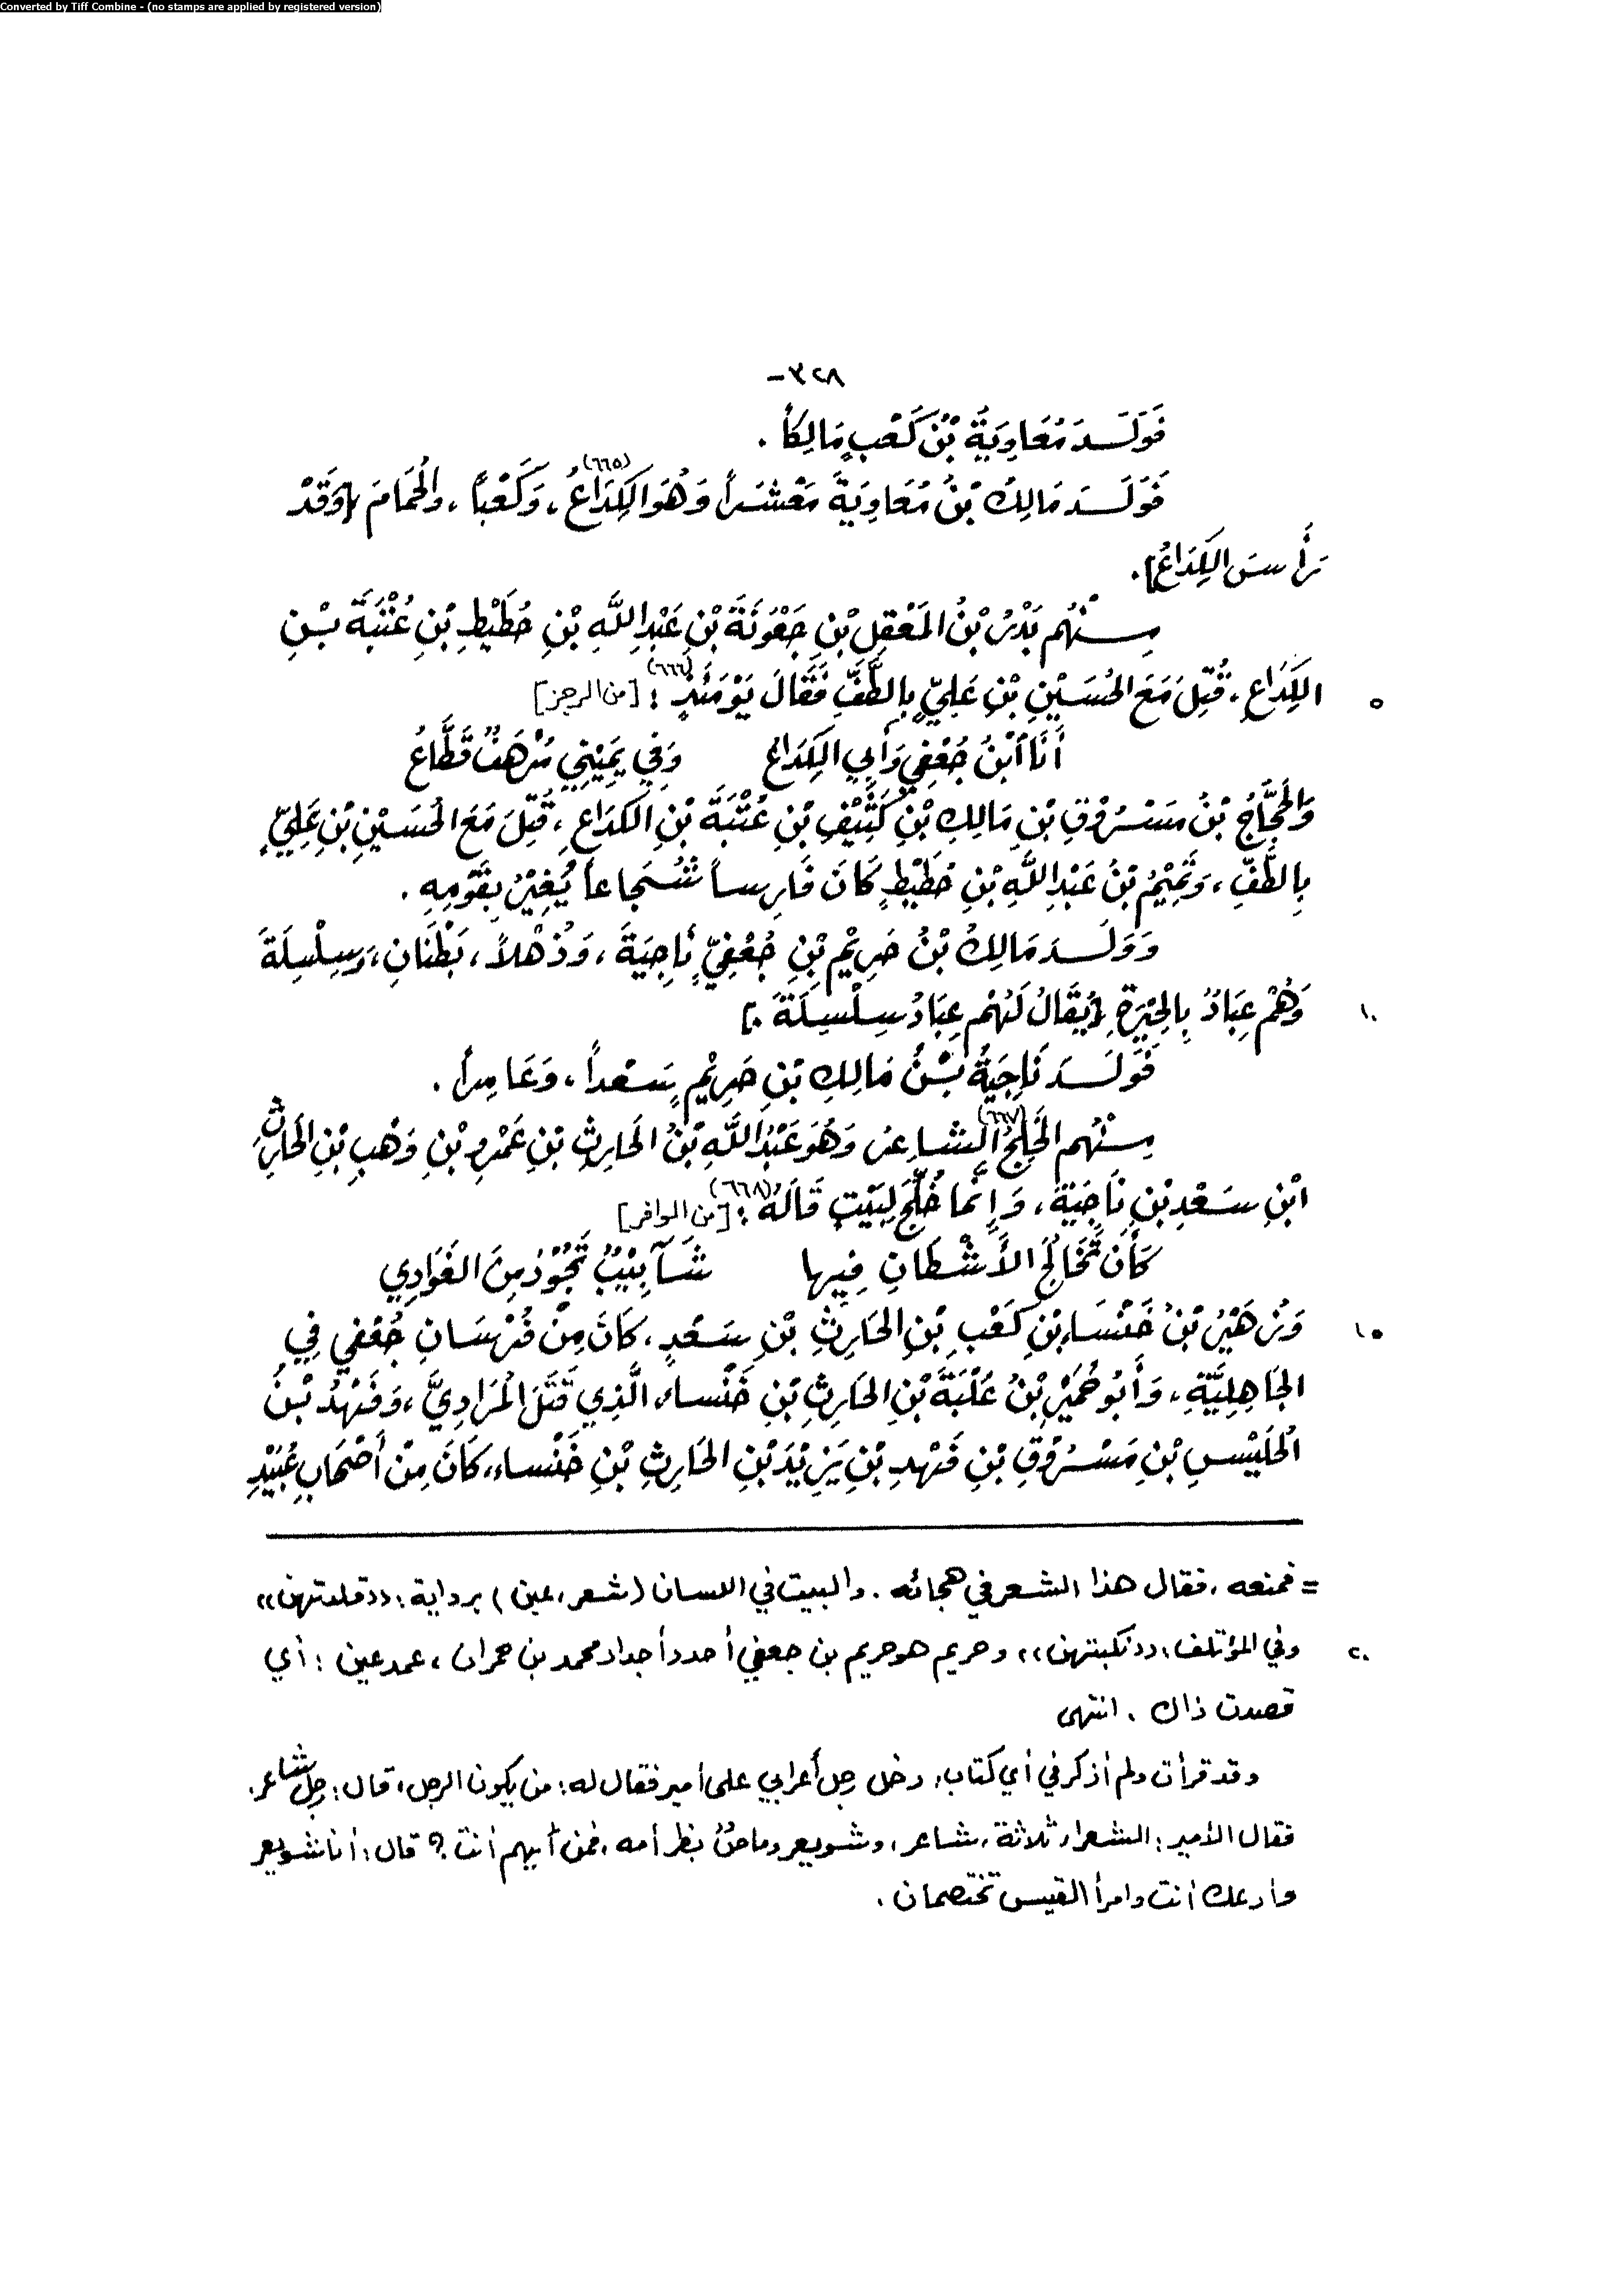 Converted by Tiff Combine - (no stamps are applied by registered version)
-٣٢٨
فَوَلَدَ مُعَاوِيَةُ بْنُ كَعْبٍ مَالِكاً .
فَوَلَدَ مَالِكُ بْنُ مُعَاوِيَةَ مَعْشَراً وَهُوَ الكِدَاعُ(٦٦٥)، وَكَعْباً، والحُمَامَ [وَقَدْ
رَأَسَ الكِدَاعُ].
مِنْهُم بَدْرُ بْنُ المَعْقِلِ بْنِ جَعْوَنَةَ بْنِ عَبْدِ اللَّهِ بْنِ حُطَيْطِ بْنِ عُتْبَةَ بْنِ
الكِدَاعِ، قُتِلَ مَعَ الحُسَيْنِ بْنِ عَلِيٍّ بِالطَّفِّ فَقَالَ يَوْمَئِذٍ(٦٦٦) : [من الرجز]
٥
أَنَا ابْنُ جُعْفِي وَأَبِي الكِدَاعُ وَفِي يَمِيْنِي مُرْهَفٌ قَطَّاعُ
وَالحَجَّاجُ بْنُ مَسْرُوْقِ بْنِ مَالِكِ بْنِ كَثِيْفِ بْنِ عُتْبَةَ بْنِ الكِدَاعِ، قُتِلَ مَعَ الحُسَيْنِ بْنِ عَلِيٍّ
بِالطَّفِّ، وَتَمِيْمُ بْنُ عَبْدِ اللَّهِ بْنِ حُطَيْطٍ كَانَ فَارِساً شُجَاعاً يُغِيْرُ بِقَوْمِهِ .
وَوَلَدَ مَالِكُ بْنُ حَرِيْمِ بْنِ جُعْفِيٍّ نَاجِيَةَ، وَذُهْلاً، بَطْنَانِ، وَسِلْسِلَةَ
وَهُمْ عِبَادٌ بِالحِيْرَةِ [يُقَالُ لَهُمْ عِبَادُ سِلْسِلَةَ .]
١٠
فَوَلَدَ نَاجِيَةُ بْنُ مَالِكِ بْنِ حَرِيْمٍ سَعْداً، وَعَامِراً .
مِنْهُم الخَلِجُ(٦٦٧) الشاعِرُ وَهُوَ عَبْدُ اللَّهِ بْنُ الحَارِثِ بْنِ عَمْرِو بْنِ وَهْبِ بْنِ الحَارِثِ
ابْنِ سَعْدِ بْنِ نَاجِيَةَ، وَإِنَّمَا خُلِّجَ لِبَيْتٍ قَالَهُ(٦٦٨) : [من الوافر]
كَأَن تَخَالُجَ الأَشْطَانِ فِيها شَآبِيْبٌ تَجُوْدُ مِنَ الغَوَادِي
وَزُهَيْرُ بْنُ خَنْسَاءِ بْنِ كَعْبِ بْنِ الحَارِثِ بْنِ سَعْدٍ، كَانَ مِنْ فُرْسَانِ جُعْفِي فِي
١٥
الجَاهِلِيَّةِ، وَأَبُو حُمَيْرِ بْنُ عَلْبَةَ بْنِ الحَارِثِ بْنِ خَنْساء، الَّذِي قَتَلَ المُرَادِيَّ، وَفَهْدُ بْنُ
الحُلَيْسِ بْنِ مَسْرُوْقِ بْنِ فَهْدِ بْنِ يَزِيْدَ بْنِ الحَارِثِ بْنِ خَنْساء، كَانَ مِنْ أَصْحَابِ عُبَيْدِ
= فمنعه، فقال هذا الشعر في هجائه . والبيت في اللسان (شعر، عين) برواية: ((قلدتهن))
وفي المؤتلف: ((نكبتهن)) وحريم هو حريم بن جعفي أحد أجداد محمد بن حمران، عمد عين : أي
٢٠
قصدت ذاك . انتهى
وقد قرأت ولم أذكر في أي كتاب: دخل رجل أعرابي على أمير فقال له: من يكون الرجل، قال: رجل شاعر.
فقال الأمير: الشعراء ثلاثة، شاعر، وشويعر وماصٌّ بظر أمه، فمن أيهم أنت؟ قال: أنا شويعر
وأدعك أنت وامرأ القيس تختصمان .